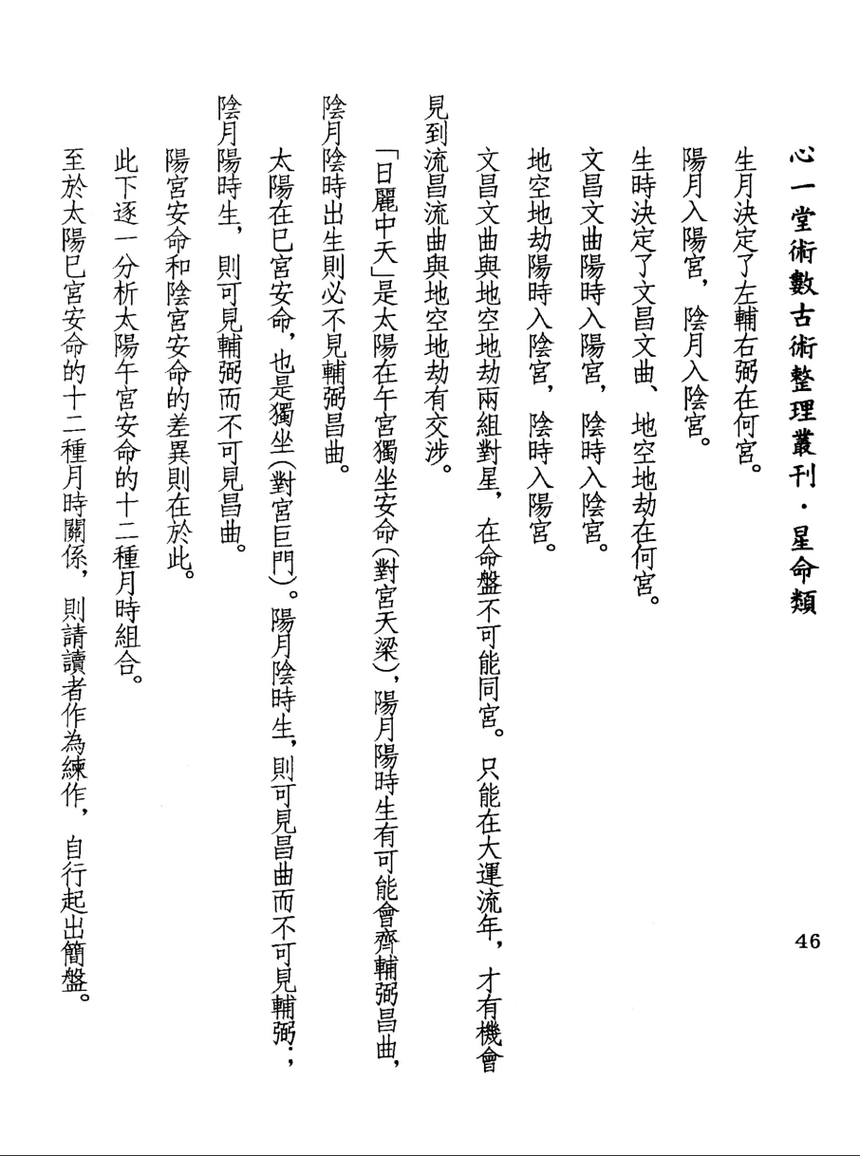 心一堂術數古術整理叢刊・星命類
生月決定了左輔右弼在何宮。
陽月入陽宮，陰月入陰宮。
生時決定了文昌文曲、地空地劫在何宮。
文昌文曲陽時入陽宮，陰時入陰宮。
地空地劫陽時入陰宮，陰時入陽宮。
文昌文曲與地空地劫兩組對星，在命盤不可能同宮。只能在大運流年，才有機會
見到流昌流曲與地空地劫有交涉。
「日麗中天」是太陽在午宮獨坐安命（對宮天梁），陽月陽時生有可能會齊輔弼昌曲，
陰月陰時出生則必不見輔弼昌曲。
太陽在巳宮安命，也是獨坐（對宮巨門）。陽月陰時生，則可見昌曲而不可見輔弼；
陰月陽時生，則可見輔弼而不可見昌曲。
陽宮安命和陰宮安命的差異則在於此。
此下逐一分析太陽午宮安命的十二種月時組合。
至於太陽巳宮安命的十二種月時關係，則請讀者作為練作，自行起出簡盤。
46